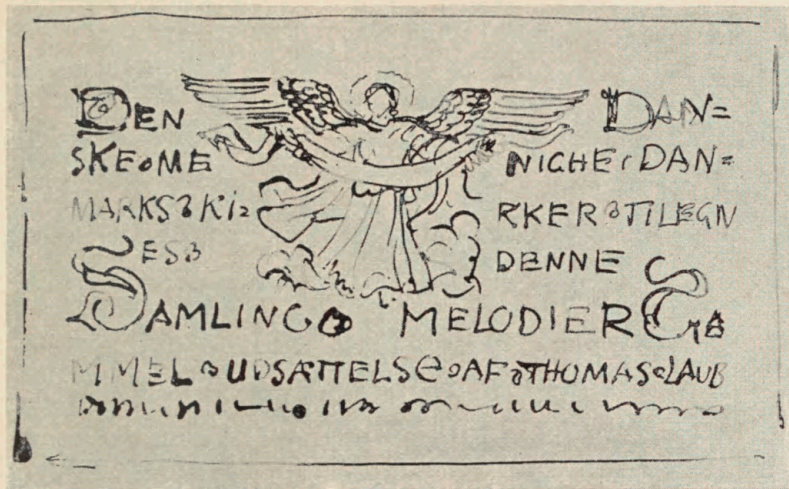 DEN DAN=
SKE ME NIGHE I DAN=
MARKS KI= RKER TILEGN
ES DENNE
SAMLING MELODIER GA
MMEL UDSÆTTELSE AF THOMAS LAUB